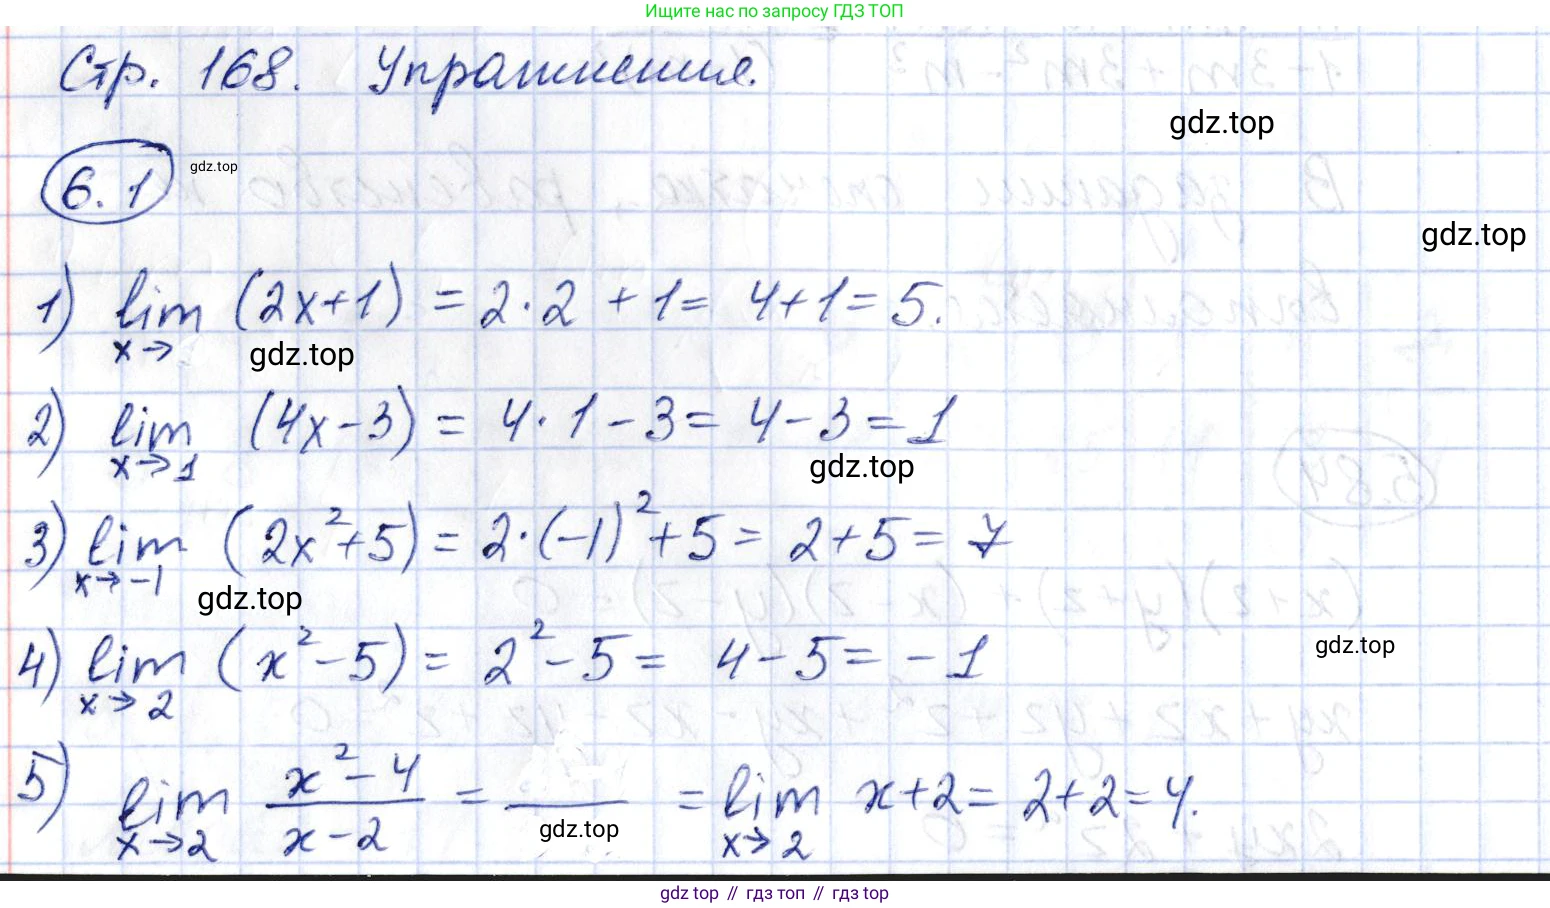 Ищите нас по запросу ГДЗ ТОП
Стр. 168. Упражнения.
gdz.top
6.1 gdz.top
gdz.top
1) lim (2x+1) = 2·2 + 1 = 4+1 = 5.
x→
gdz.top
2) lim (4x-3) = 4·1 - 3 = 4-3 = 1
x→1
gdz.top
3) lim (2x²+5) = 2·(-1)²+5 = 2+5 = 7
x→-1
gdz.top
4) lim (x²-5) = 2²-5 = 4-5 = -1
x→2
gdz.top
5) lim x²-4 / x-2 = = lim x+2 = 2+2 = 4.
x→2 x→2
gdz.top
gdz top // гдз топ // гдз top